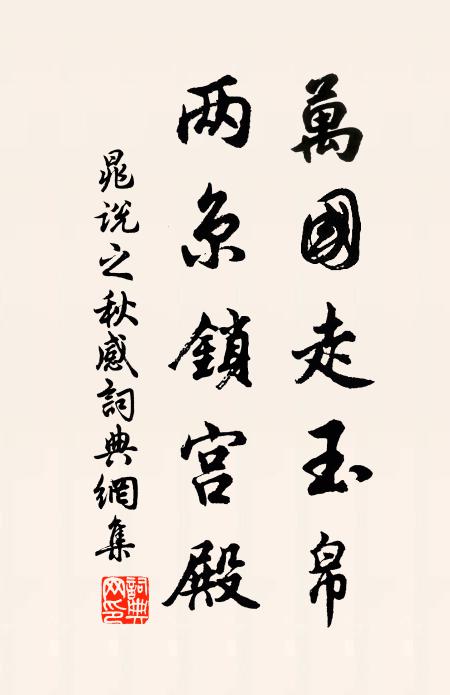 萬國走玉帛
两京鎖宫殿
晁説之秋感詞典網集
詞典网印